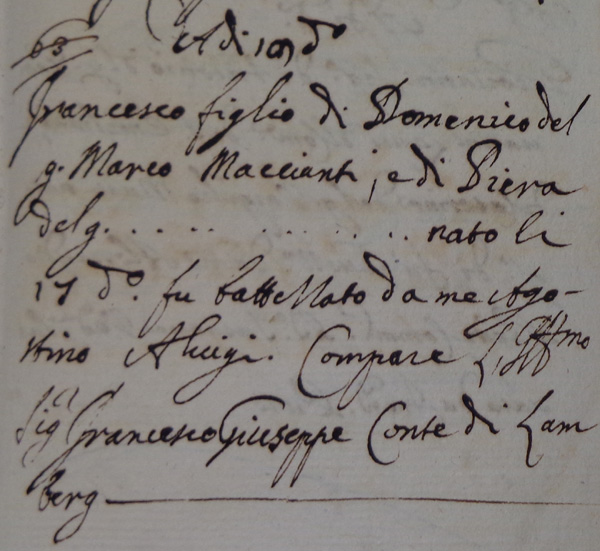 63 A di 19 do
Francesco figlio di Domenico del
q. Marco Maccianti, e di Piera
del q. . . . . . . . . . . nato li
17 do. fu battellato da me Ago-
stino Aluigi. Compare L'Illmo
Sig Francesco Giuseppe Conte di Lam
berg